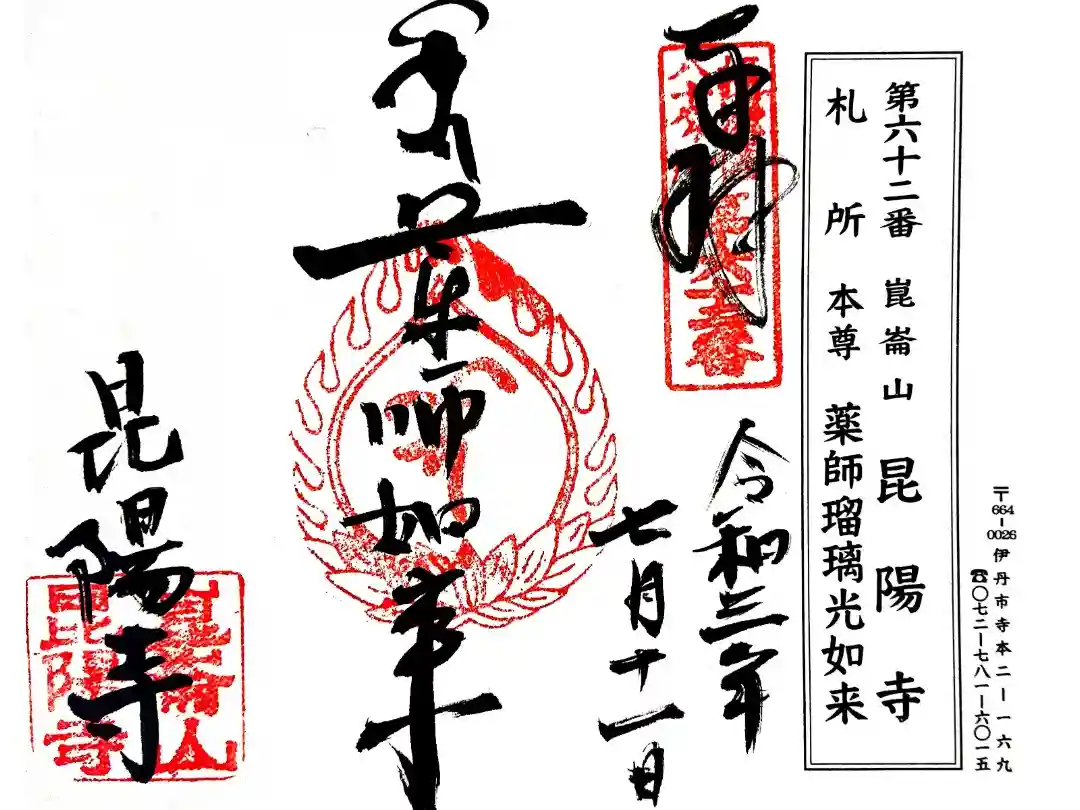 〒664-0026 伊丹市寺本二ー一六九
☎〇七二ー七八一ー六〇一五
第六十二番 崑崙山 昆陽寺
札所本尊 薬師瑠璃光如来
奉拝
令和三年
七月十一日
師如来
昆陽寺
崑崙山
昆陽寺